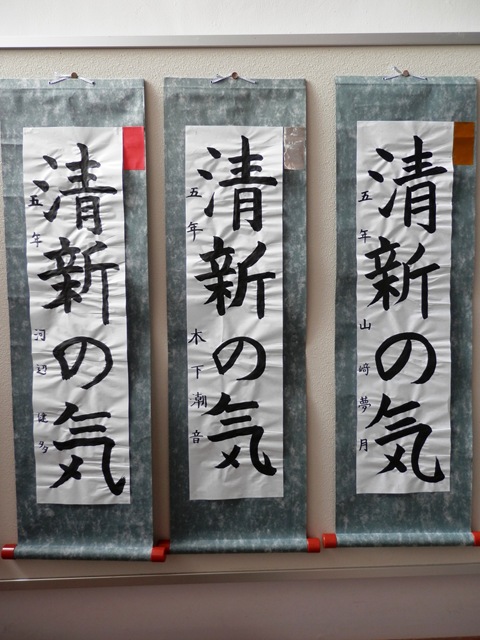 清新の気
五年 河辺健多
清新の気
五年 木下潮音
清新の気
五年 山﨑夢月